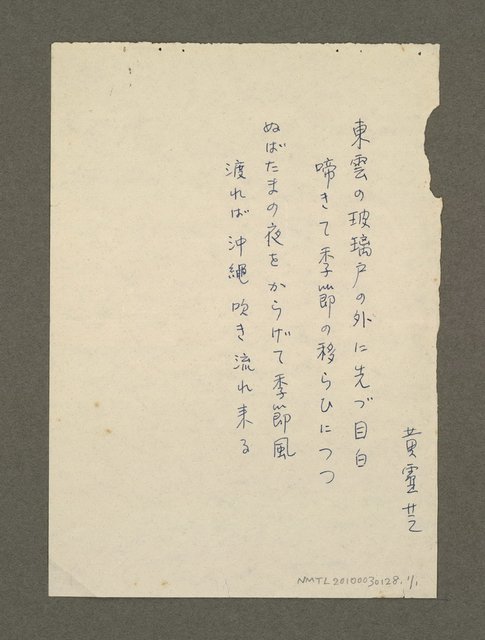 黄霊芝
東雲の玻璃戸の外に先づ目白
啼きて季節の移らひにつつ
ぬばたまの夜をからげて季節風
渡れば沖縄吹き流れ来る
NMTL20100030128.1/1